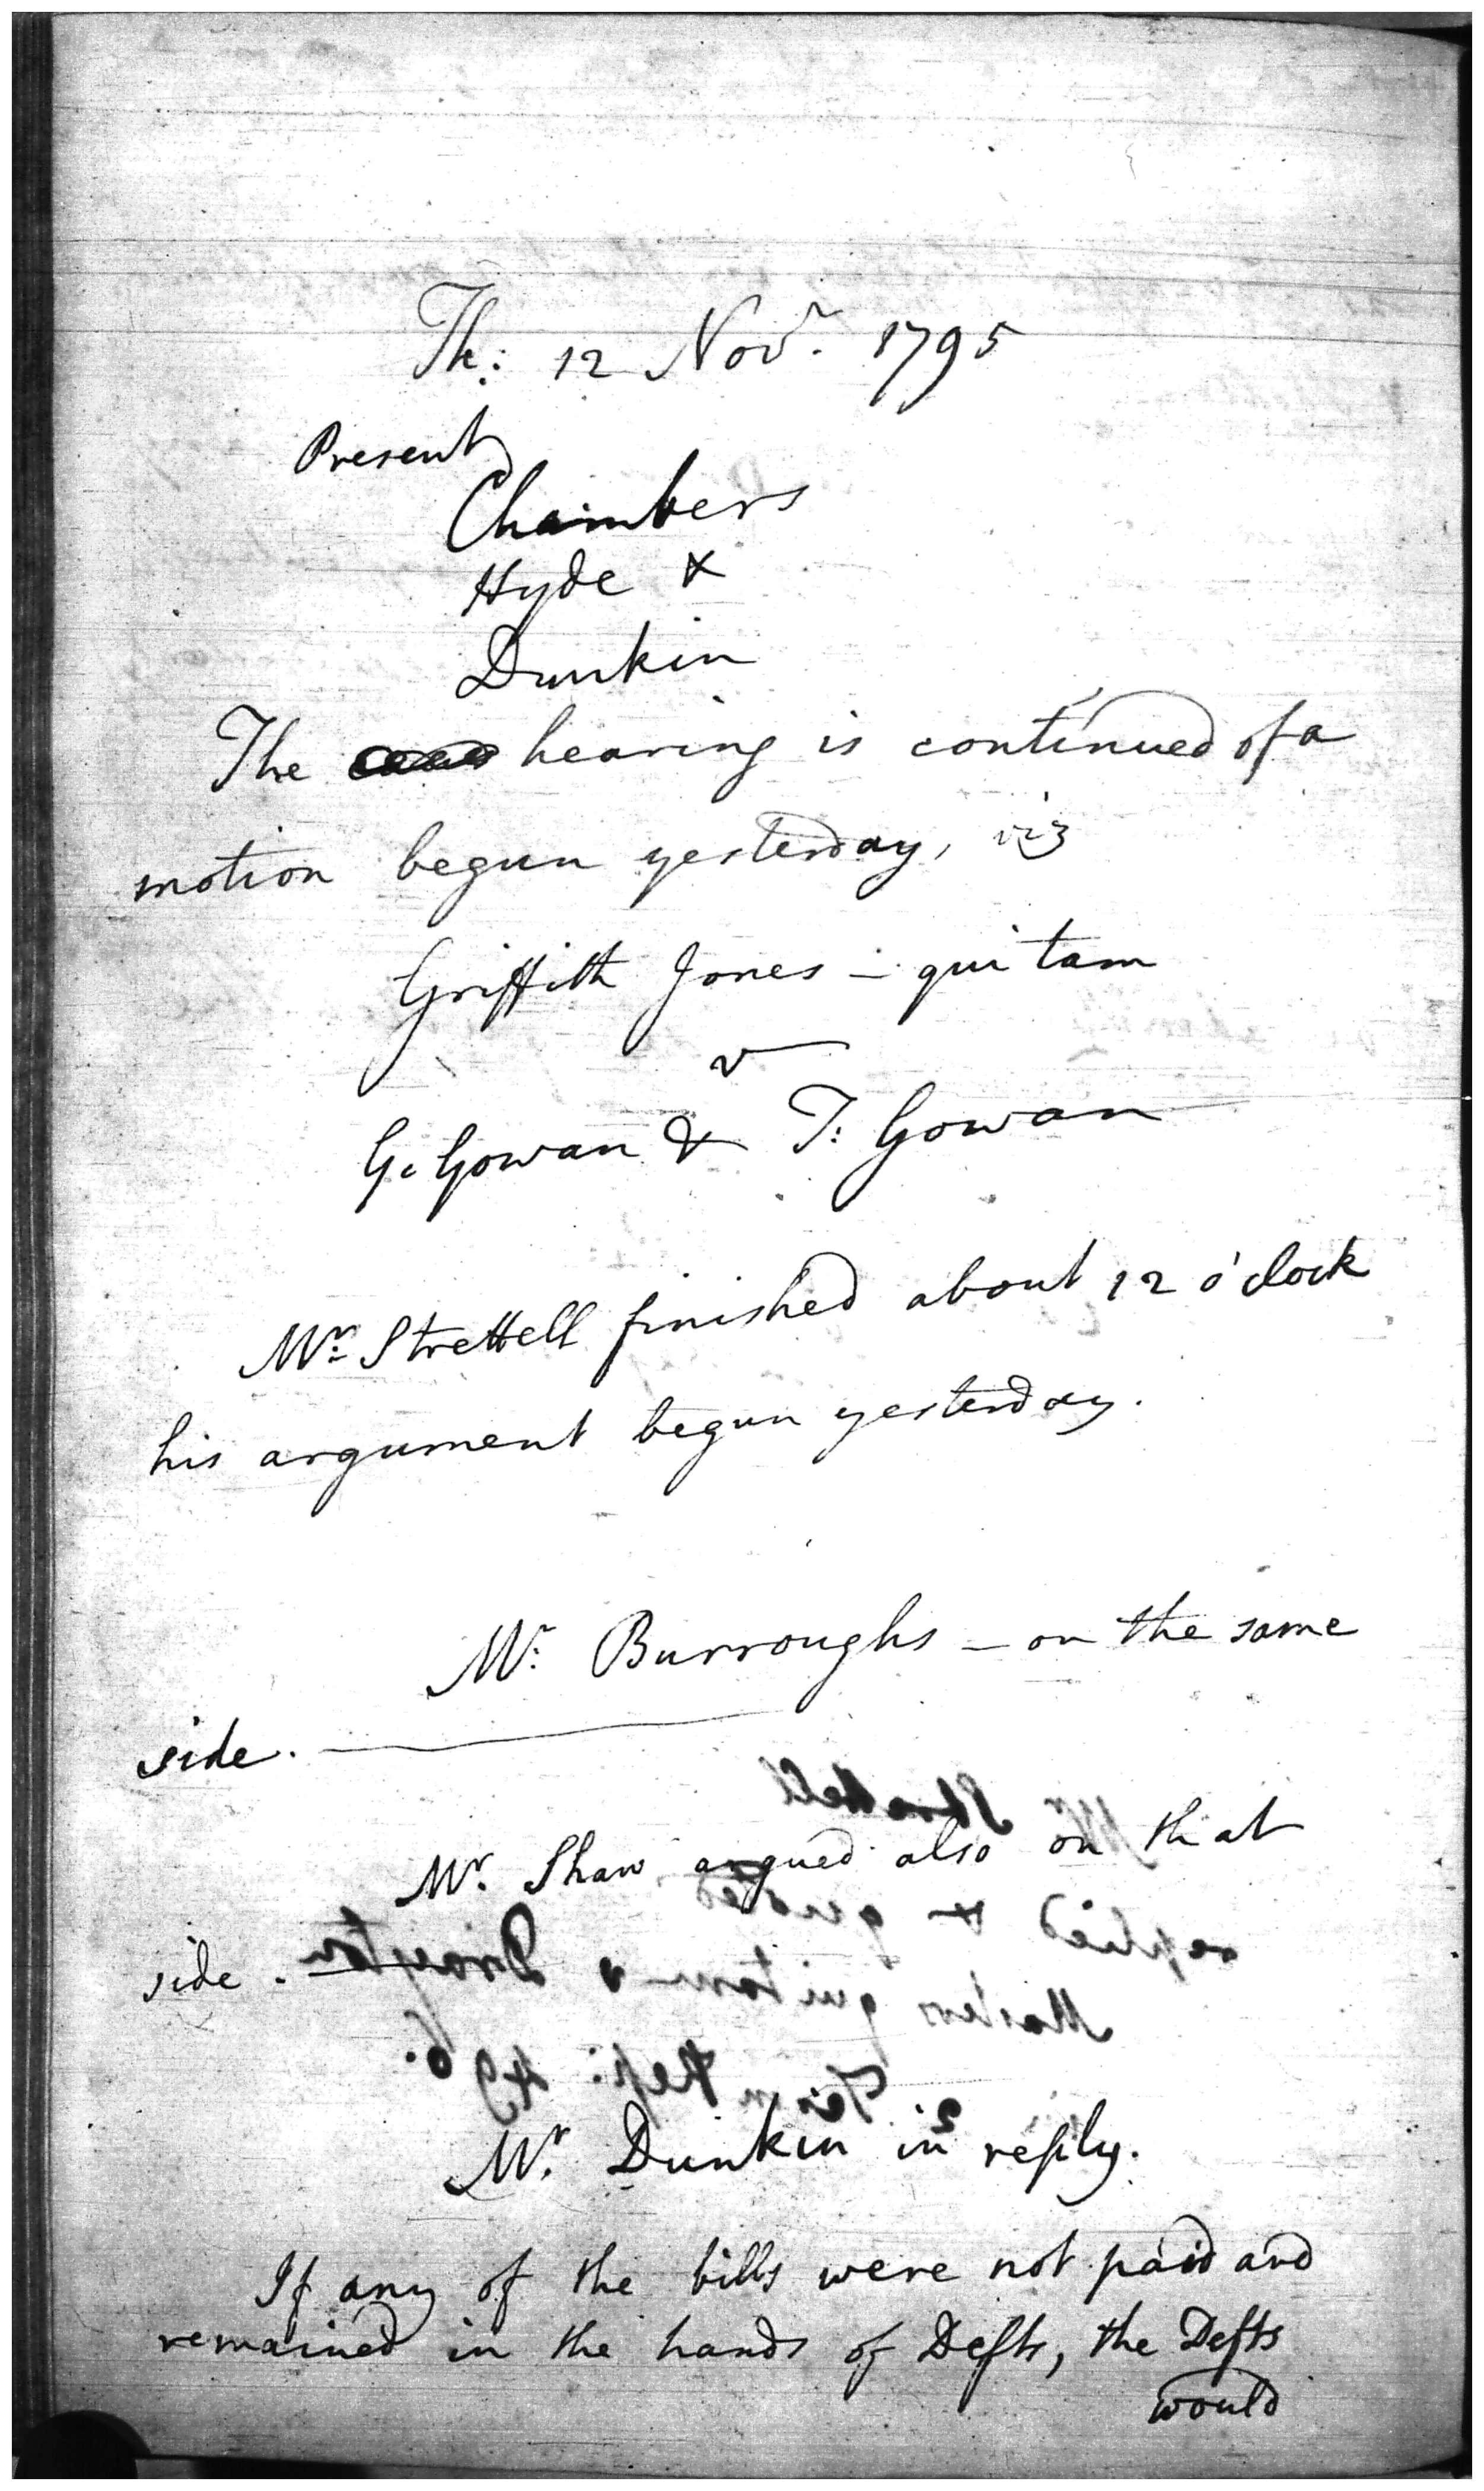 Th: 12 Novr. 1795
Present
Chambers
Hyde &
Dunkin
The hearing is continued of a
motion begun yesterday, viz
Griffith Jones - qui tam
v
G. Gowan & T: Gowan
Mr. Strettell finished about 12 o'clock
his argument begun yesterday.
Mr. Burroughs - on the same
side.
Mr. Shaw argued also on that
side.
Mr. Dunkin in reply.
If any of the bills were not paid and
remained in the hands of Defts, the Defts
would